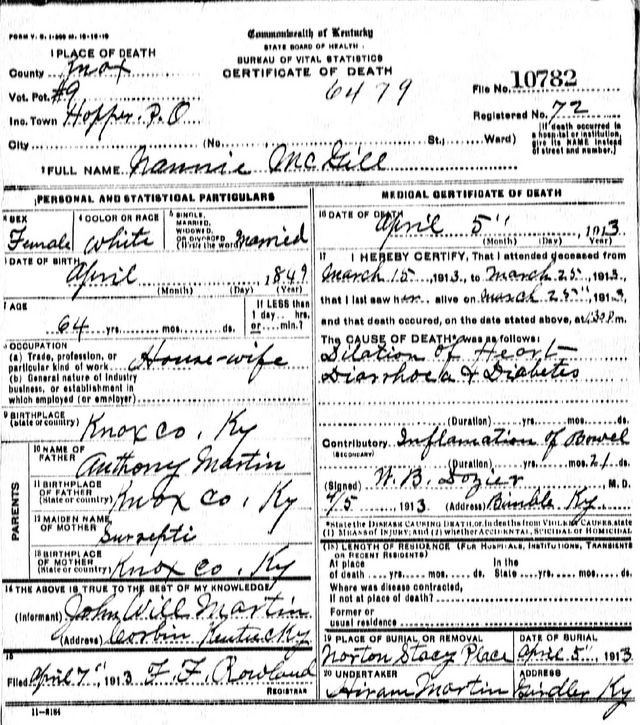 FORM V. S. 1-200 M. 10-10-10
Commonwealth of Kentucky
STATE BOARD OF HEALTH
BUREAU OF VITAL STATISTICS
CERTIFICATE OF DEATH
1 PLACE OF DEATH
County Knox
Vot. Pct. #9
Inc. Town Hopper P.O
City (No. St.; Ward)
6479
File No. 10782
Registered No. 72
[If death occurred in a hospital or institution give its NAME instead of street and number.]
2 FULL NAME Nannie McGill
PERSONAL AND STATISTICAL PARTICULARS
3 SEX Female
4 COLOR OR RACE White
5 SINGLE, MARRIED, WIDOWED, OR DIVORCED (Write the word) Married
6 DATE OF BIRTH April 1849
(Month) (Day) (Year)
7 AGE 64 yrs. mos. ds.
If LESS than 1 day, hrs. or min.?
8 OCCUPATION
(a) Trade, profession, or particular kind of work House-wife
(b) General nature of industry business, or establishment in which employed (or employer)
9 BIRTHPLACE (State or country) Knox co. Ky
PARENTS
10 NAME OF FATHER Anthony Martin
11 BIRTHPLACE OF FATHER (State or country) Knox Co. Ky
12 MAIDEN NAME OF MOTHER
13 BIRTHPLACE OF MOTHER (State or country) Knox co. Ky
14 THE ABOVE IS TRUE TO THE BEST OF MY KNOWLEDGE
(Informant) John Will Martin
(Address) Corbin Kentucky
15
Filed April 7", 1913 F. F. Rowland
REGISTRAR
11-8184
MEDICAL CERTIFICATE OF DEATH
16 DATE OF DEATH April 5" 1913
(Month) (Day) (Year)
17 I HEREBY CERTIFY, That I attended deceased from
March 15, 1913, to March 25, 1913,
that I last saw her alive on March 25", 1913,
and that death occurred, on the date stated above, at 1:30 P.m.
The CAUSE OF DEATH* was as follows:
Dilation of Heart
Diarrhoea & Diabetes
(Duration) yrs. mos. ds.
Contributory Inflamation of Bowel
(SECONDARY)
(Duration) yrs. mos. 21 ds.
(Signed) W. B. Dozier M. D.
4/5 1913 (Address) Bimble Ky
*State the DISEASE CAUSING DEATH, or, in deaths from VIOLENT CAUSES, state (1) MEANS OF INJURY; and (2) whether ACCIDENTAL, SUICIDAL or HOMICIDAL
(18) LENGTH OF RESIDENCE (FOR HOSPITALS, INSTITUTIONS, TRANSIENTS OR RECENT RESIDENTS)
At place of death yrs. mos. ds. In the State yrs. mos. ds.
Where was disease contracted, if not at place of death?
Former or usual residence
19 PLACE OF BURIAL OR REMOVAL Norton Stacy Place
DATE OF BURIAL April 5", 1913
20 UNDERTAKER Hiram Martin
ADDRESS Girdler Ky